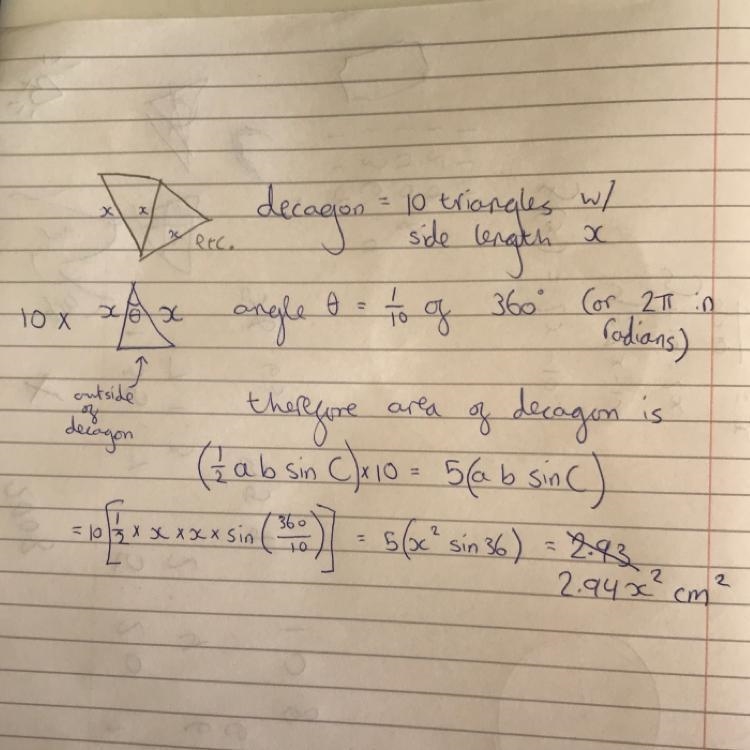 x x x etc.
decagon = 10 triangles w/
side length x
10 x x θ x angle θ = 1/10 of 360° (or 2π in
radians)
outside
of
decagon
therefore area of decagon is
(1/2 a b sin C) x 10 = 5(a b sin C)
= 10[1/2 x x x x x sin (360/10)] = 5(x² sin 36) = 2.93
2.94x² cm²